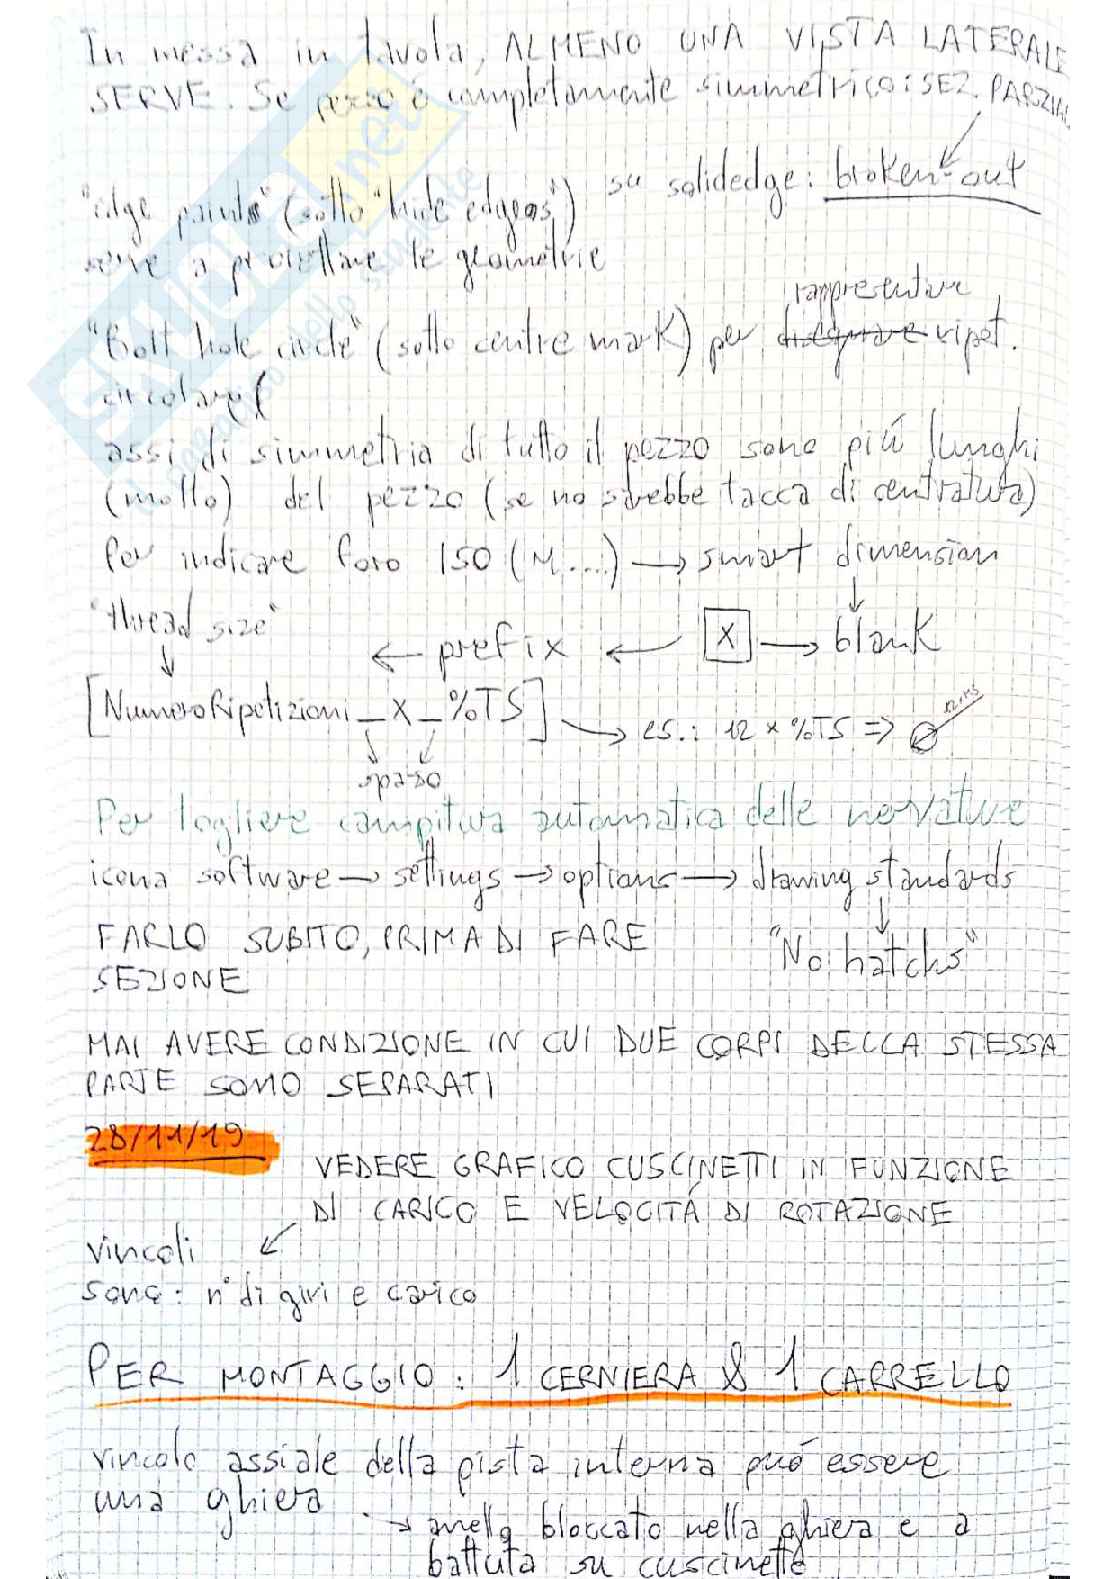 In messa in tavola, ALMENO UNA VISTA LATERALE
SERVE. Se pezzo è completamente simmetrico: SEZ. PARZIAL
su solidedge: broken-out
"edge paints" (sotto "hide edges")
serve a proiettare le geometrie
rappresentare
"Bolt hole circle" (sotto centre mark) per disegnare ripet.
circolare (
assi di simmetria di tutto il pezzo sono più lunghi
(molto) del pezzo (se no sarebbe tacca di centratura)
Per indicare foro ISO (M....) → smart dimension
↓
"thread size" ← prefix ← X → blank
↓
[NumeroRipetizioni _ X _ %TS] → es.: 12 x %TS ⇒
spazio
Per togliere campitura automatica delle nervature
icona software → settings → options → drawing standards
↓
FARLO SUBITO, PRIMA DI FARE "No hatchs"
SEZIONE
MAI AVERE CONDIZIONE IN CUI DUE CORPI DELLA STESSA
PARTE SONO SEPARATI
28/11/19
VEDERE GRAFICO CUSCINETTI IN FUNZIONE
DI CARICO E VELOCITÁ DI ROTAZIONE
vincoli
sono: n° di giri e carico
PER MONTAGGIO: 1 CERNIERA & 1 CARRELLO
vincolo assiale della pista interna può essere
una ghiera
→ anello bloccato nella ghiera e a
battuta su cuscinetto
SKUOLA.net